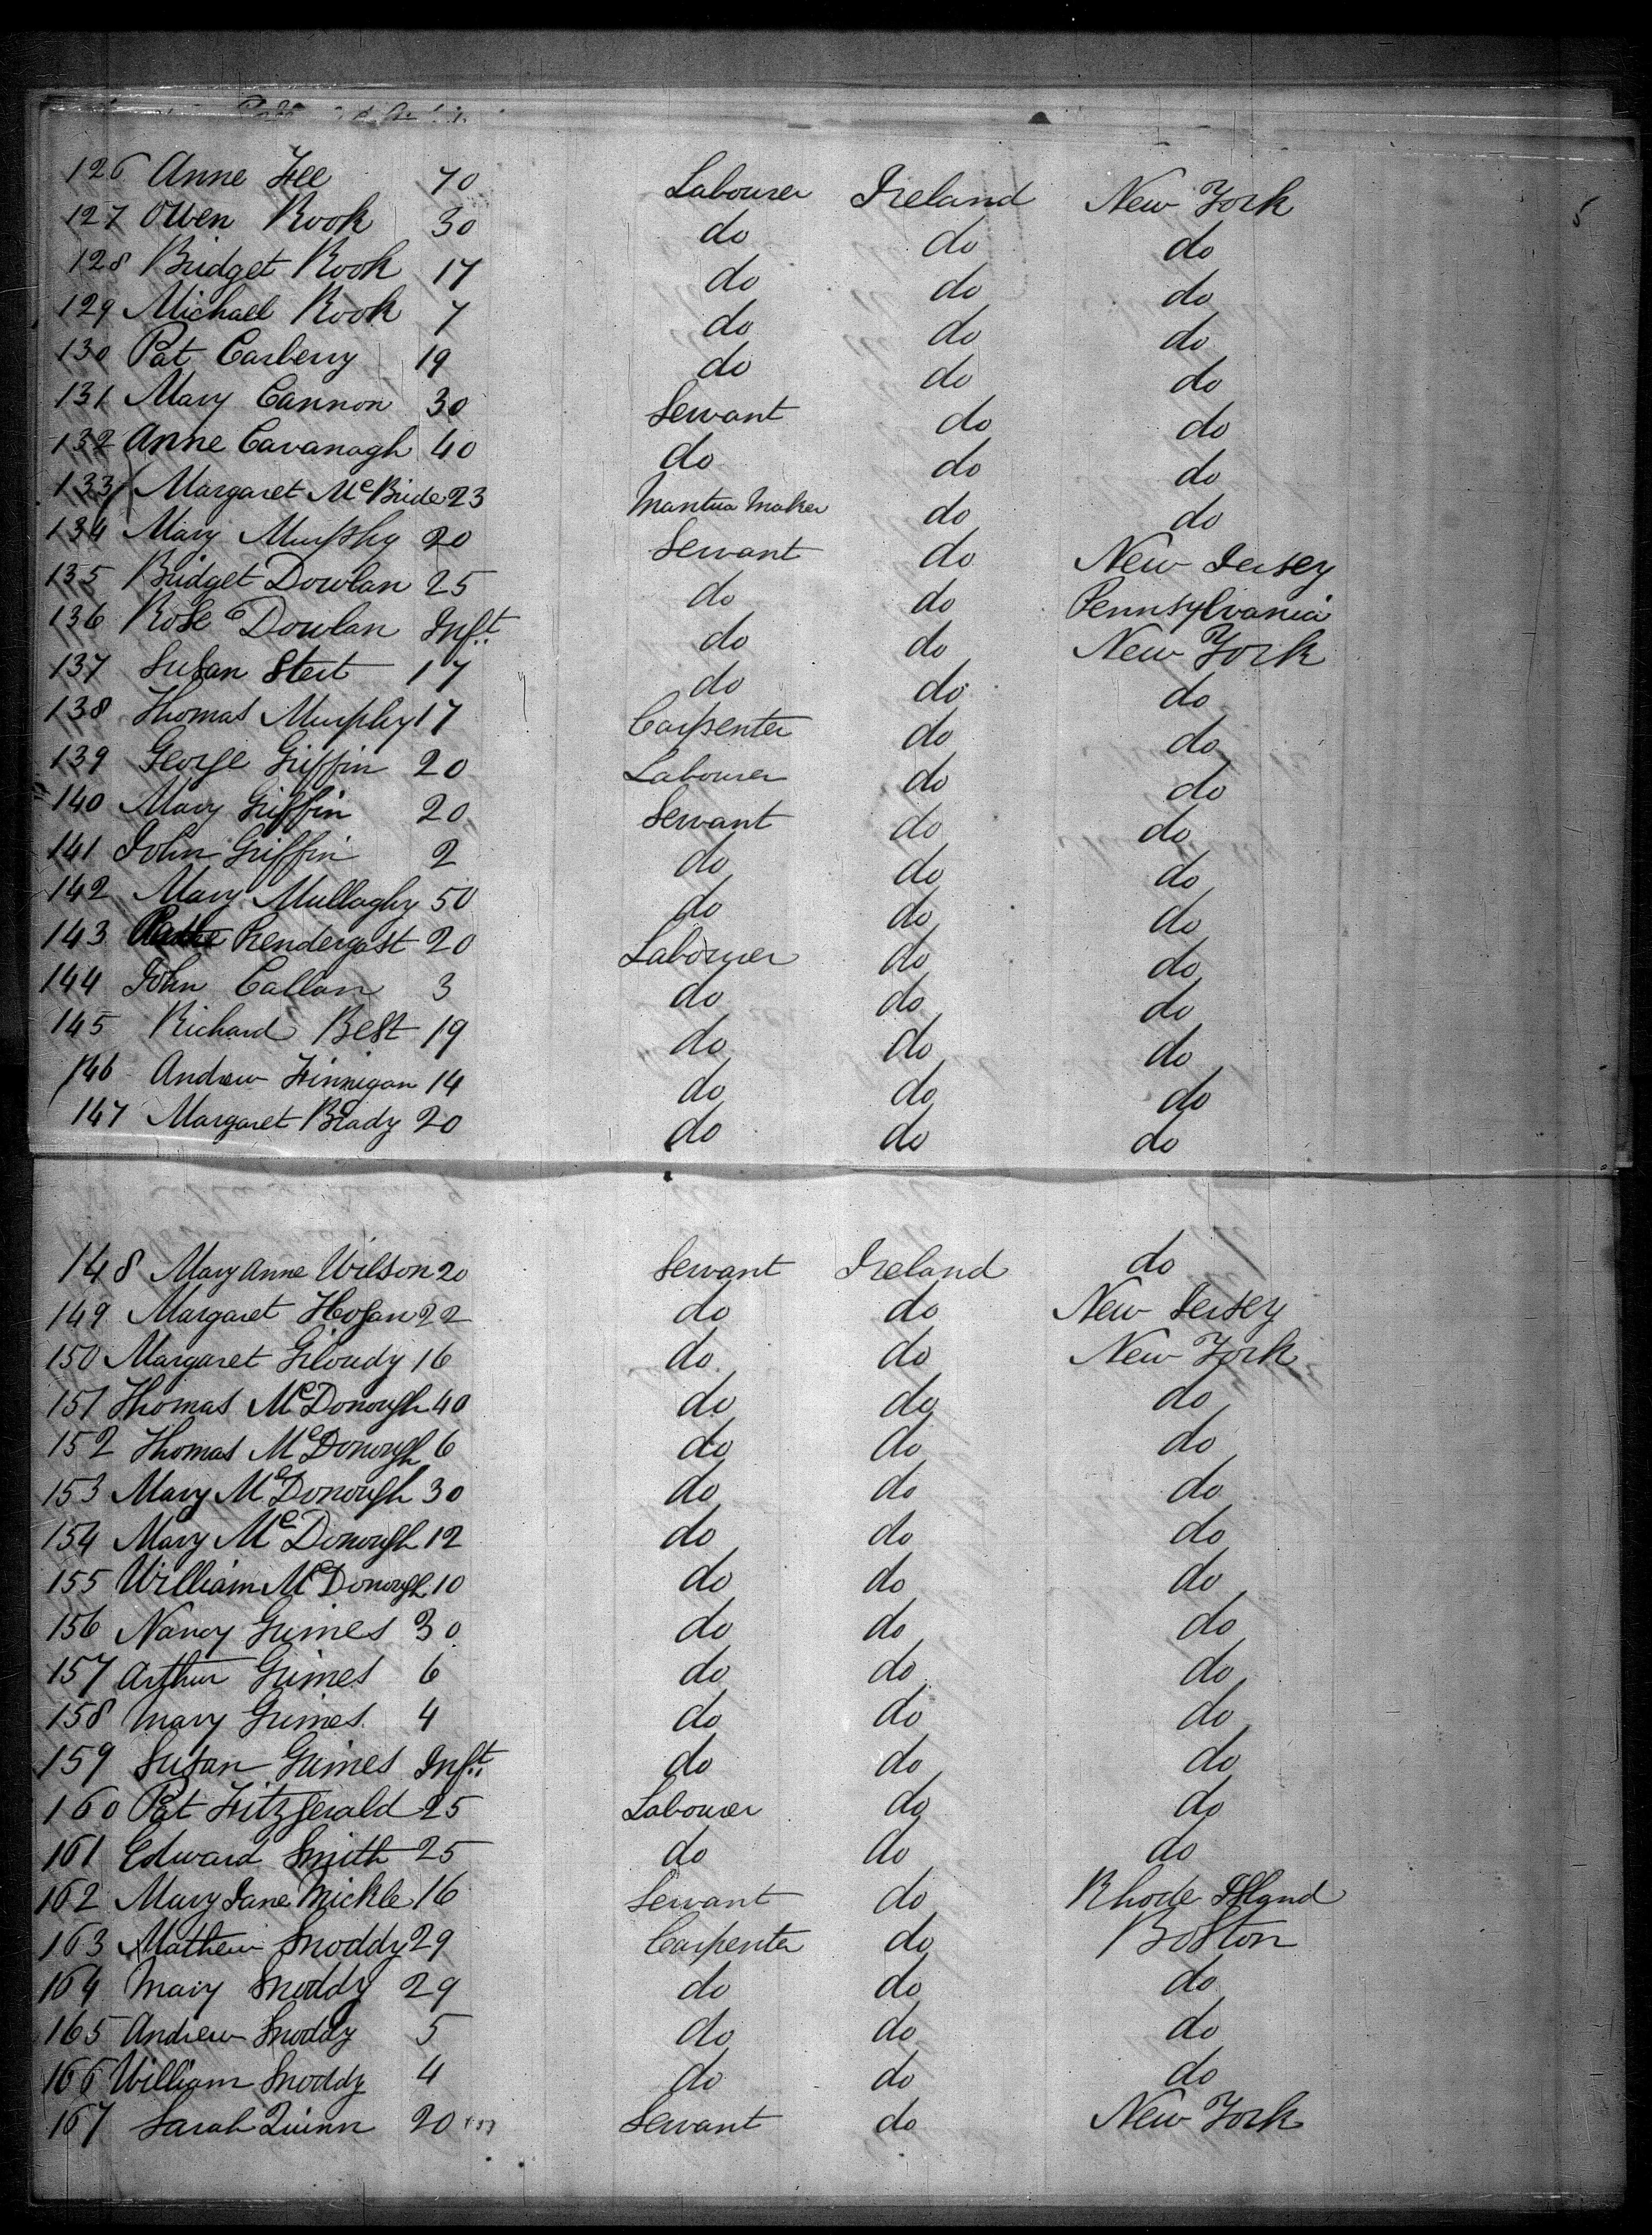 126 Anne Fee 70 Labourer Ireland New York
127 Owen Rook 30 do do do
128 Bridget Rook 17 do do do
129 Michael Rook 7 do do do
130 Pat Carberry 19 do do do
131 Mary Cannon 30 Servant do do
132 Anne Cavanagh 40 do do do
133 Margaret McBride 23 Mantua Maker do do
134 Mary Murphy 20 Servant do New Jersey
135 Bridget Dowlan 25 do do Pennsylvania
136 Rose Dowlan Inft. do do New York
137 Susan Stert 17 do do do
138 Thomas Murphy 17 Carpenter do do
139 George Griffin 20 Labourer do do
140 Mary Griffin 20 Servant do do
141 John Griffin 2 do do do
142 Mary Mullaghy 50 do do do
143 Prendergast 20 Labourer do do
144 John Callan 3 do do do
145 Richard Best 19 do do do
146 Andrew Finnigan 14 do do do
147 Margaret Brady 20 do do do
148 Mary Anne Wilson 20 Servant Ireland do
149 Margaret Hogan 22 do do New Jersey
150 Margaret Giloudy 16 do do New York
151 Thomas McDonough 40 do do do
152 Thomas McDonough 6 do do do
153 Mary McDonough 30 do do do
154 Mary McDonough 12 do do do
155 William McDonough 10 do do do
156 Nancy Grimes 30 do do do
157 Arthur Grimes 6 do do do
158 Mary Grimes 4 do do do
159 Susan Grimes Inft. do do do
160 Pat Fitzgerald 25 Labourer do do
161 Edward Smith 25 do do do
162 Mary Jane Mickle 16 Servant do Rhode Island
163 Mathew Snoddy 29 Carpenter do Boston
164 Mary Snoddy 29 do do do
165 Andrew Snoddy 5 do do do
166 William Snoddy 4 do do do
167 Sarah Quinn 20 Servant do New York